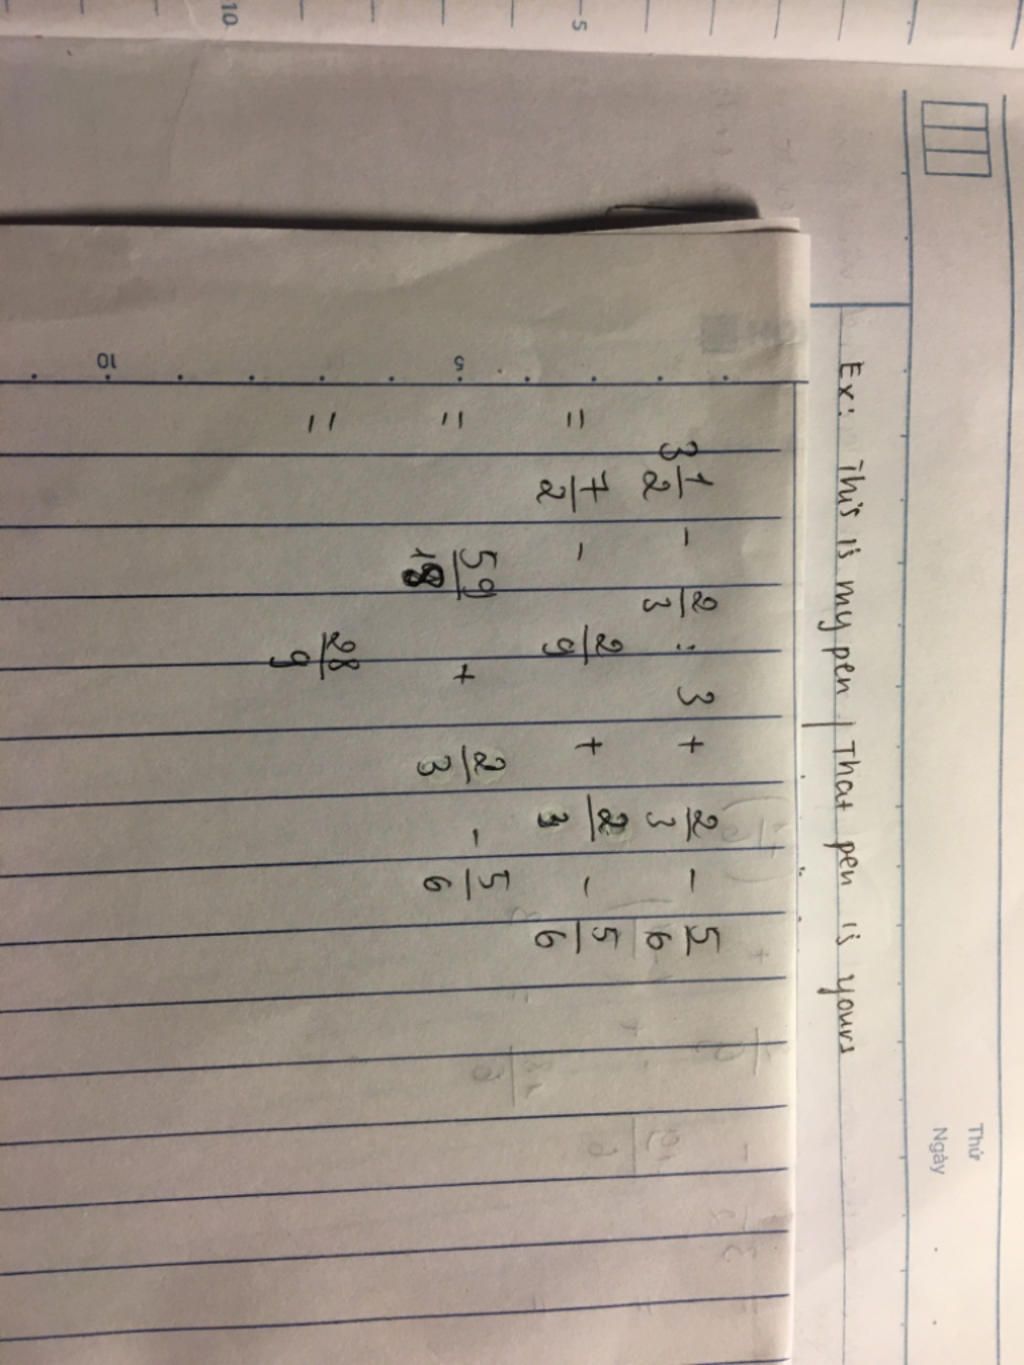 Thứ
Ngày
Ex: This is my pen / That pen is yours
3 1/2 - 2/3 : 3 + 2/3 - 5/6
= 7/2 - 2/9 + 2/3 - 5/6
= 59/18 + 2/3 - 5/6
= 28/9
5
10
5
10